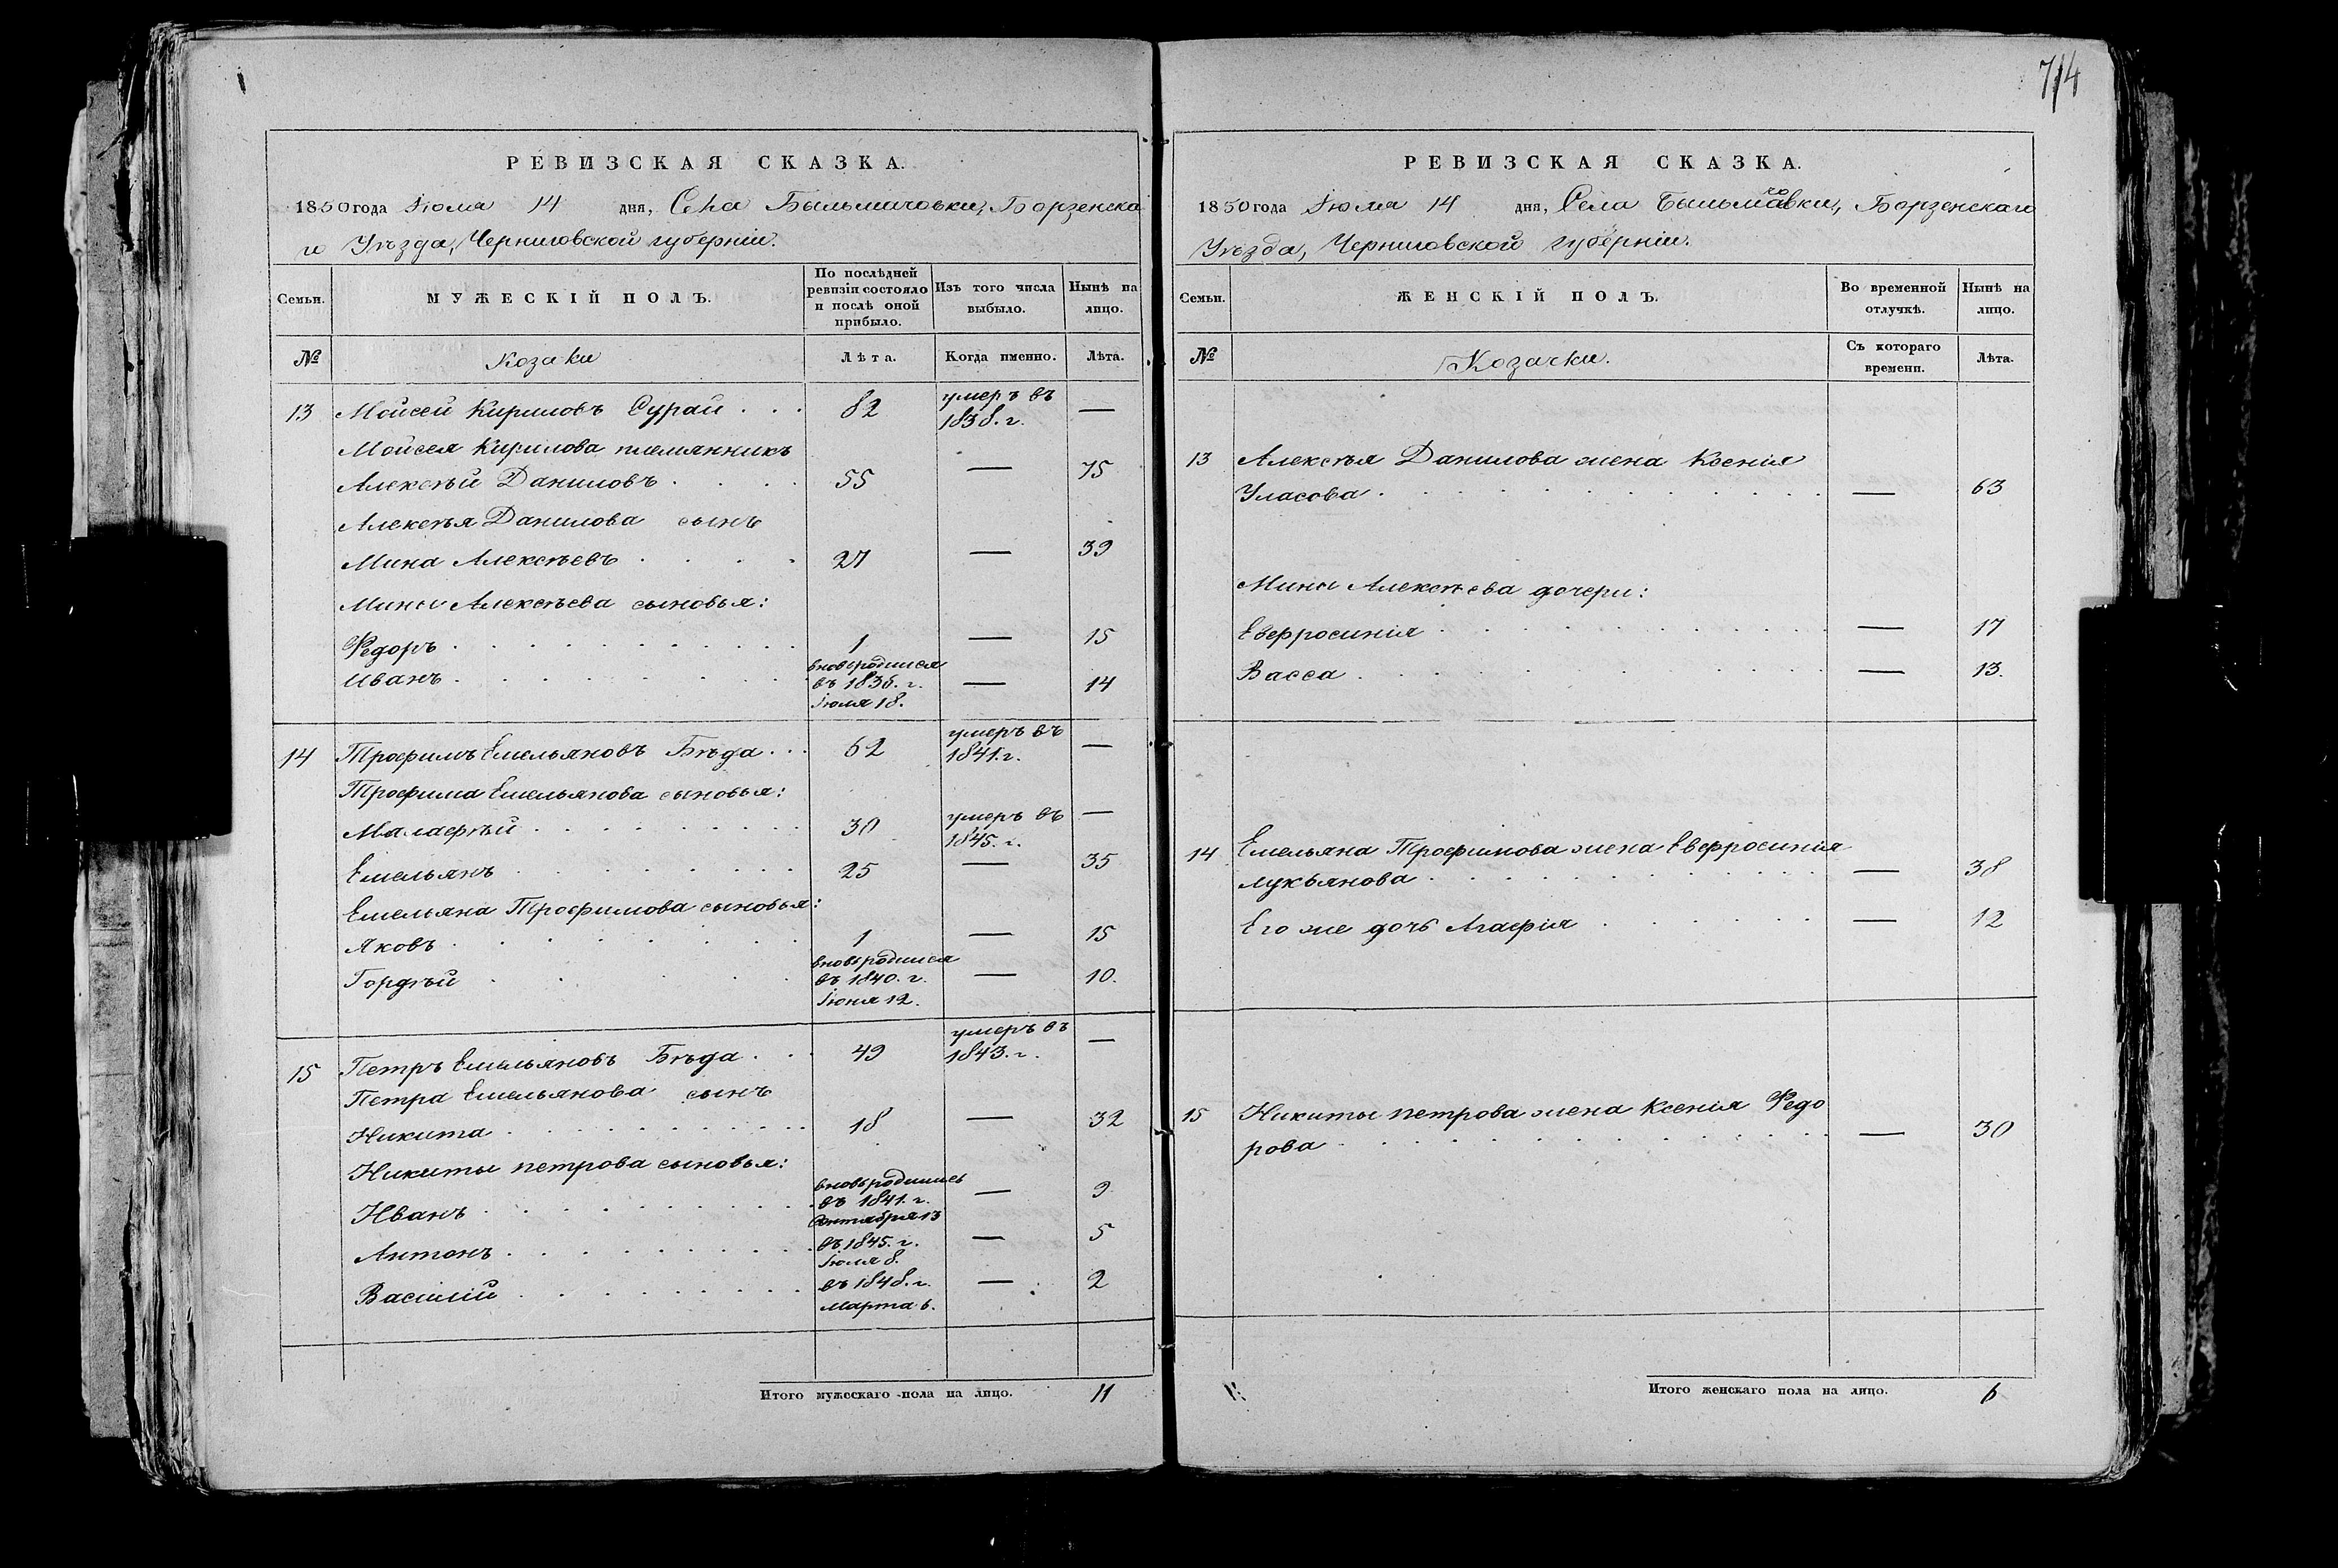 714
РЕВИЗСКАЯ СКАЗКА.
1850 года Іюля 14 дня, Села Быльмачовки, Борзенска
го Уѣзда, Черниговской губерніи.
Семьи.
МУЖЕСКІЙ ПОЛЪ.
По послѣдней
ревизіи состояло
и послѣ оной
прибыло.
Изъ того числа
выбыло.
Нынѣ на
лицо.
№ Козаки Лѣта. Когда именно. Лѣта.
13 Мойсей Кириловъ Сурай . . . 82 умеръ въ 1838. г. —
Мойсея Кирилова племянникъ
Алексѣй Даниловъ . . . . 55 — 75
Алексѣя Данилова сынъ
Мина Алексѣевъ . . . . 27 — 39
Мины Алексѣева сыновья:
Федоръ . . . . 1 — 15
Иванъ . . . . вновьродился въ 1836. г. Іюля 18. — 14
14 Трофимъ Емельяновъ Бѣда . . . 62 умеръ въ 1841. г. —
Трофима Емельянова сыновья:
Малафѣй . . . . 30 умеръ въ 1845. г. —
Емельянъ . . . . 25 — 35
Емельяна Трофимова сыновья:
Яковъ . . . . 1 — 15
Гордѣй . . . . вновьродился въ 1840. г. Іюня 12. — 10.
15 Петръ Емельяновъ Бѣда . . . 49 умеръ въ 1843. г. —
Петра Емельянова сынъ
Никита . . . . 18 — 32
Никиты петрова сыновья:
Иванъ . . . . вновьродились въ 1841. г. Сентября 13 — 9
Антонъ . . . . въ 1845. г. Іюля 8. — 5
Василій . . . . въ 1848. г. Марта 6. — 2
Итого мужескаго пола на лицо. 11
РЕВИЗСКАЯ СКАЗКА.
1850 года Іюля 14 дня, Села Быльмачовки, Борзенскаго
Уѣзда, Черниговской губерніи.
Семьи.
ЖЕНСКІЙ ПОЛЪ.
Во временной
отлучкѣ.
Нынѣ на
лицо.
№ Козачки. Съ котораго времени. Лѣта.
13 Алексѣя Данилова жена Ксенія
Уласова . . . . — 63
Мины Алексѣева дочери:
Евфросинія . . . . — 17
Васса . . . . — 13.
14 Емельяна Трофимова жена Евфросинія
лукьянова . . . . — 38
Его же дочь Агафія . . . . — 12
15 Никиты петрова жена Ксенія Федо
рова . . . . — 30
Итого женскаго пола на лицо. 6